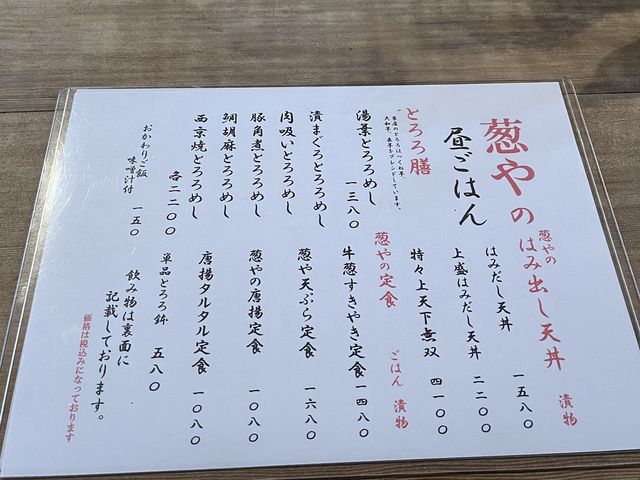 葱やの
昼ごはん
とろろ膳
当店のとろろはつくね芋、
大和芋、長芋をブレンドしています。
湯葉とろろめし 一三八〇
漬まぐろとろろめし
肉吸いとろろめし
豚角煮とろろめし
鯛胡麻とろろめし
西京焼とろろめし
各二二〇〇
おかわりご飯
味噌汁付 一五〇
葱やの
はみ出し天丼 漬物
はみだし天丼 一五八〇
上盛はみだし天丼 二二〇〇
特々上天下無双 四一〇〇
葱やの定食 ごはん 漬物
牛葱すきやき定食 一四八〇
葱や天ぷら定食 一六八〇
葱やの唐揚定食 一〇八〇
唐揚タルタル定食 一〇八〇
単品とろろ鉢 五八〇
飲み物は裏面に
記載しております。
価格は税込みになっております